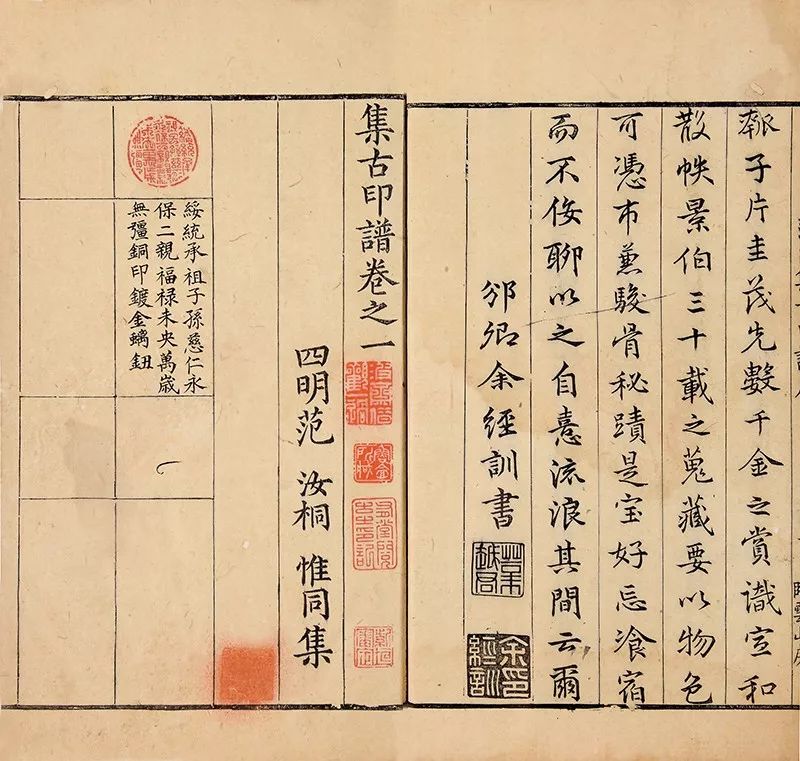 瓠子片圭茂先數千金之賞識宣和
散帙景伯三十載之蒐藏要以物色
可憑市兼駿骨秘蹟是宝好忘飡宿
而不佞聊以之自憙流浪其間云爾
邠卿余經訓書
余經訓印
集古印譜卷之一
四明范 汝桐 惟同集
綏統承祖子孫慈仁永
保二親福禄未央萬歳
無彊銅印鍍金螭鈕